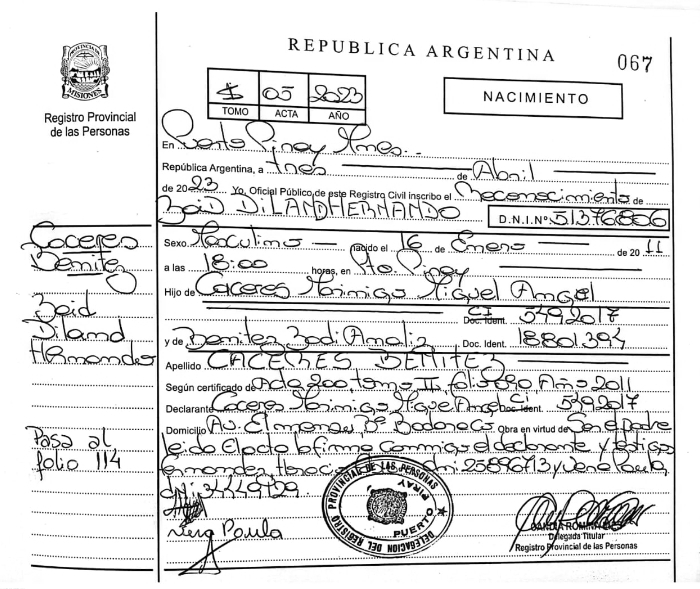 REPUBLICA ARGENTINA
067
PROVINCIA DE
MISIONES
Registro Provincial
de las Personas
1 05 2023
TOMO ACTA AÑO
NACIMIENTO
En Puerto Piray Mnes.
República Argentina, a tres de Abril
de 2023 Yo, Oficial Público de este Registro Civil inscribo el Reconocimiento de
ZAID DILAND HERNANDO D.N.I.Nº 51376806
Caceres
Benitez
Zaid
Diland
Hernando
Sexo Masculino nacido el 16 de Enero de 2011
a las 18:00 horas, en Pto. Piray
Hijo de Caceres Miguel Angel
CI
Doc. Ident. 5492017
y de Benitez Amalia Doc. Ident. 18801394
Apellido CACERES BENITEZ
Según certificado de Acta 200, tomo II, folio Año 2011
Declarante Caceres Miguel Angel CI Doc. Ident. 5492017
Domicilio Av. Obra en virtud de Ser el padre
leido El acta la firma conmigo el declarante y testigos
Horacio dni: 25896713 y Vera Paula
dni: 34449129
Pasa al
folio 114
Vera Paula
DELEGACION DEL REGISTRO PROVINCIAL DE LAS PERSONAS
PUERTO PIRAY
Delegada Titular
Registro Provincial de las Personas